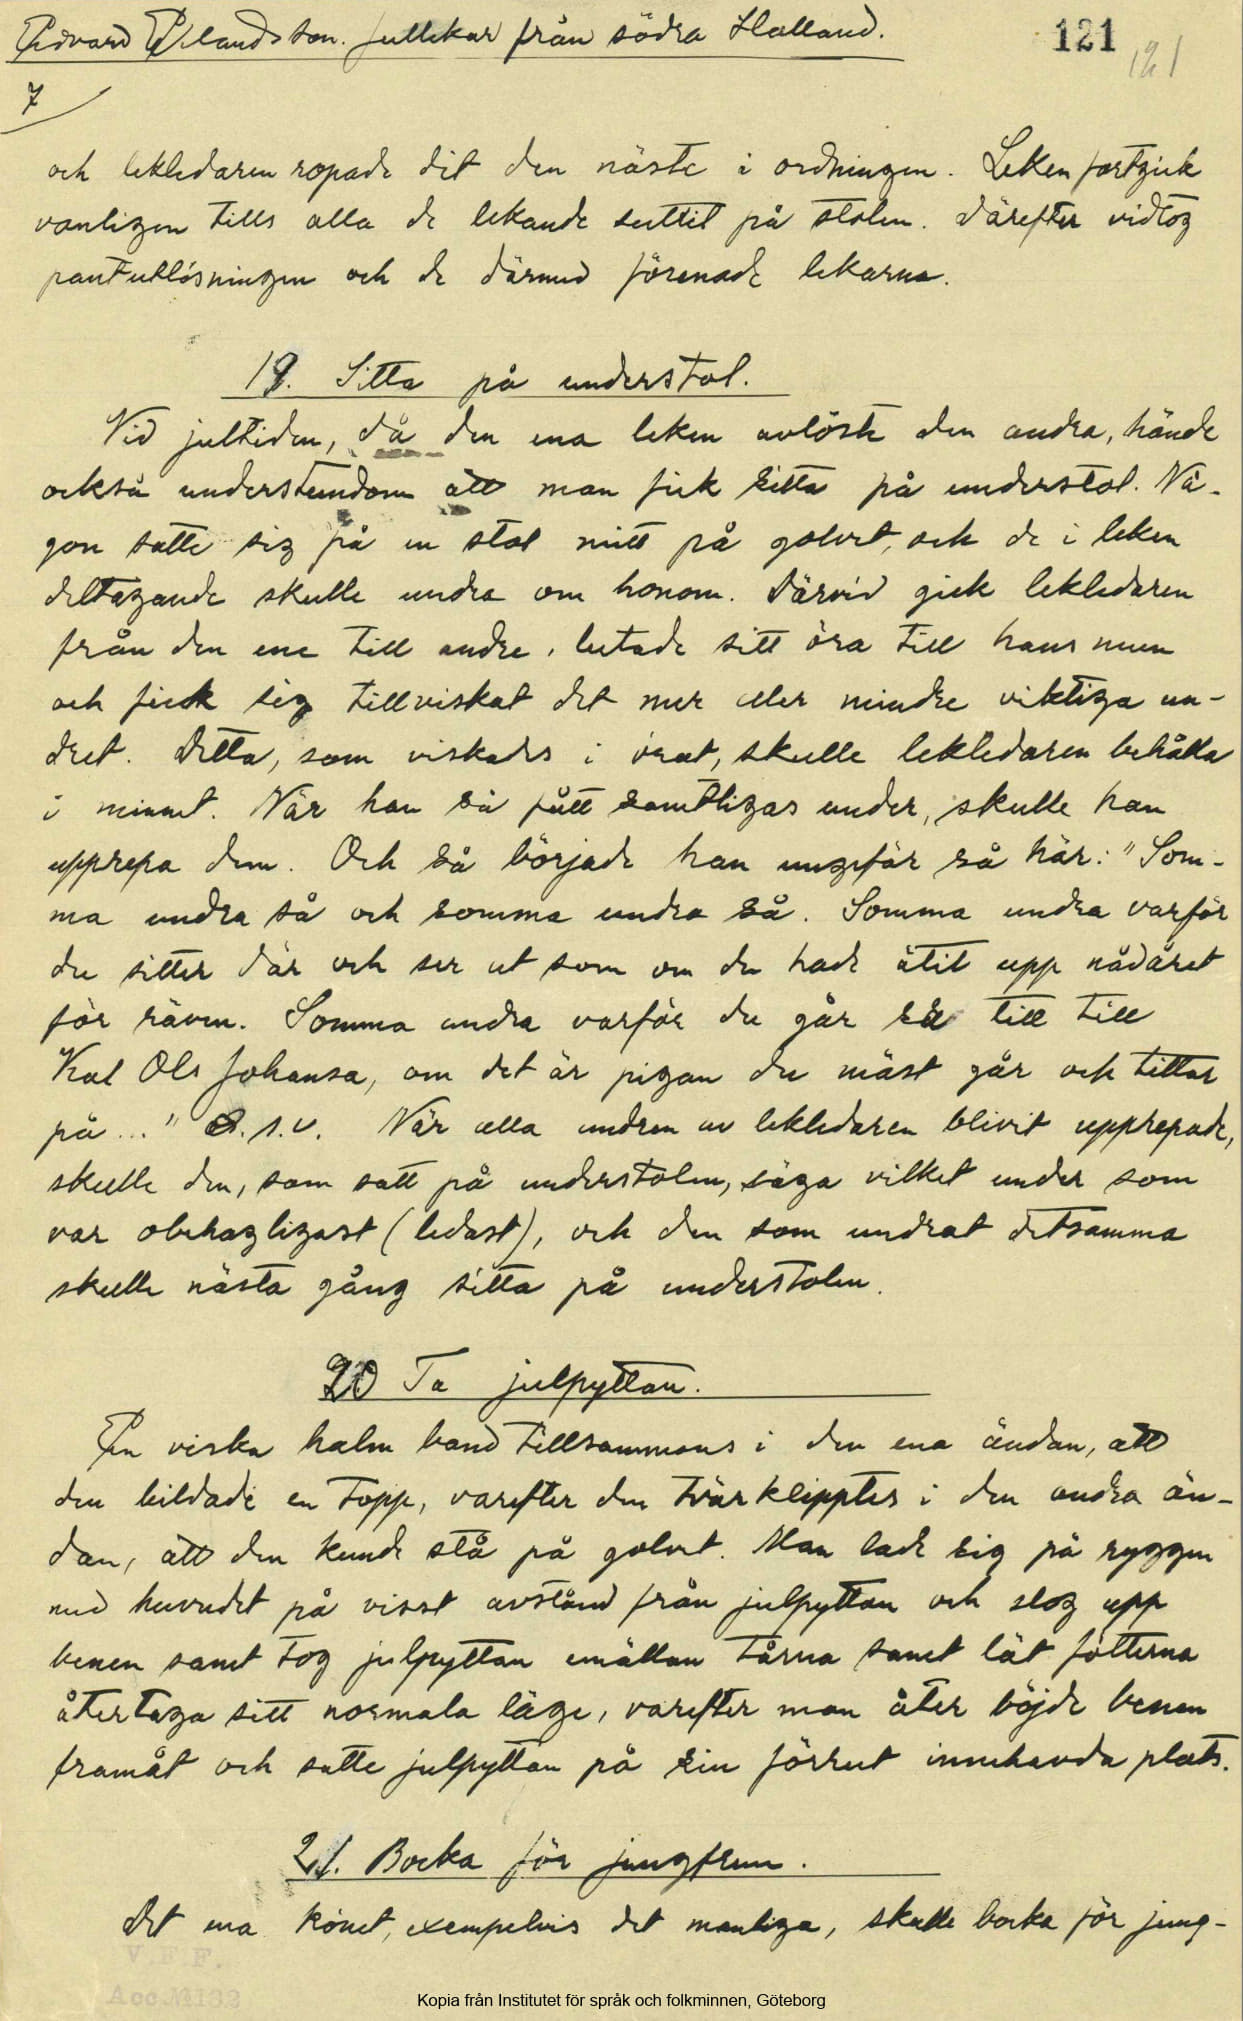 Edvard Erlandsson. Jullekar från södra Halland.
121
121
7
och lekledaren ropade dit den näste i ordningen. Leken fortgick
vanligen tills alla de lekande suttit på stolen. Därefter vidtog
pantutlösningen och de därmed förenade lekarna.
19. Sitta på understol.
Vid jultiden, då den ena leken avlöste den andra, hände
också understundom att man fick sitta på understol. Nå-
gon satte sig på en stol mitt på golvet, och de i leken
deltagande skulle undra om honom. Därvid gick lekledaren
från den ene till andre, lutade sitt öra till hans mun
och fick sig tillviskat det mer eller mindre viktiga un-
dret. Detta, som viskades i örat, skulle lekledaren behålla
i minnet. När han så fått samtligas under, skulle han
upprepa dem. Och så började han ungefär så här: "Som-
ma undra så och somma undra så. Somma undra varför
du sitter där och ser ut som om du hade ätit upp nådåret
för räven. Somma undra varför du går så till till
Kal Ols Johansa, om det är pigan du mäst går och tittar
på..." o.s.v. När alla undren av lekledaren blivit upprepade,
skulle den, som satt på understolen, säga vilket under som
var obehagligast (ledast), och den som undrat detsamma
skulle nästa gång sitta på understolen.
20 Ta julpyttan.
En viska halm band tillsammans i den ena ändan, att
den bildade en topp, varefter den tvärklipptes i den andra än-
dan, att den kunde stå på golvet. Man lade sig på ryggen
med huvudet på visst avstånd från julpyttan och slog upp
benen samt tog julpyttan emällan tårna samt lät fötterna
återtaga sitt normala läge, varefter man åter böjde benen
framåt och satte julpyttan på sin förrut innehavda plats.
21. Bocka för jungfrun.
Det ena könet, exempelvis det manliga, skulle bocka för jung-
V.F.F.
Acc. № 1132
Kopia från Institutet för språk och folkminnen, Göteborg